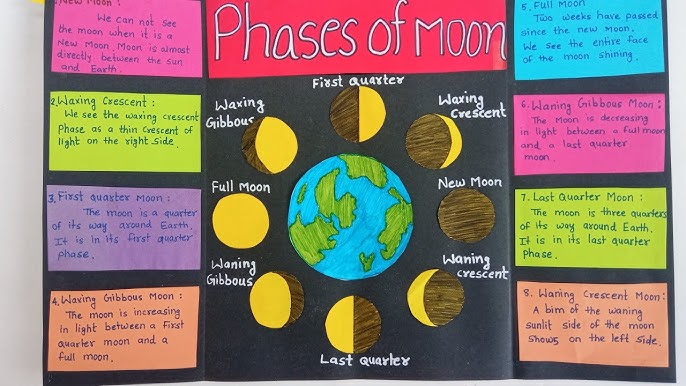 1. New Moon :
We can not see
the moon when it is a
New Moon. Moon is almost
directly between the sun
and Earth.
2. Waxing Crescent :
We see the waxing crescent
Phase as a thin crescent of
light on the right side.
3. First quarter Moon :
The moon is a quarter
of its way around Earth.
It is in its first quarter
phase.
4. Waxing Gibbous Moon :
The moon is increasing
in light between a First
quarter moon and a
full moon.
Phases of Moon
First Quarter
Waxing
Gibbous
Waxing
Crescent
Full Moon
New Moon
Waning
Gibbous
Waning
crescent
Last Quarter
5. Full Moon
Two weeks have passed
since the new Moon.
We see the entire face
of the moon shining.
6. Waning Gibbous Moon :
The Moon is decreasing
in light between a full moon
and a last quarter
moon.
7. Last Quarter Moon :
The moon is three quarters
of its way around Earth.
It is in its last quarter
Phase.
8. Waning Crescent Moon :
A bim of the waning
sunlit side of the moon
shows on the left side.